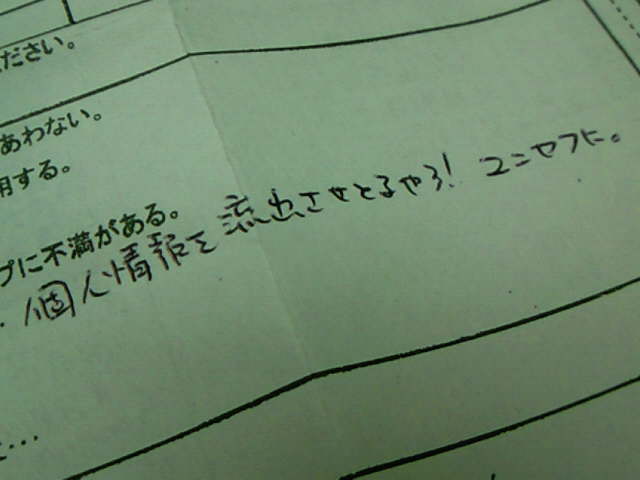 ださい。
あわない。
用する。
プに不満がある。
個人情報を流出させとるやろ!ユニセフに。